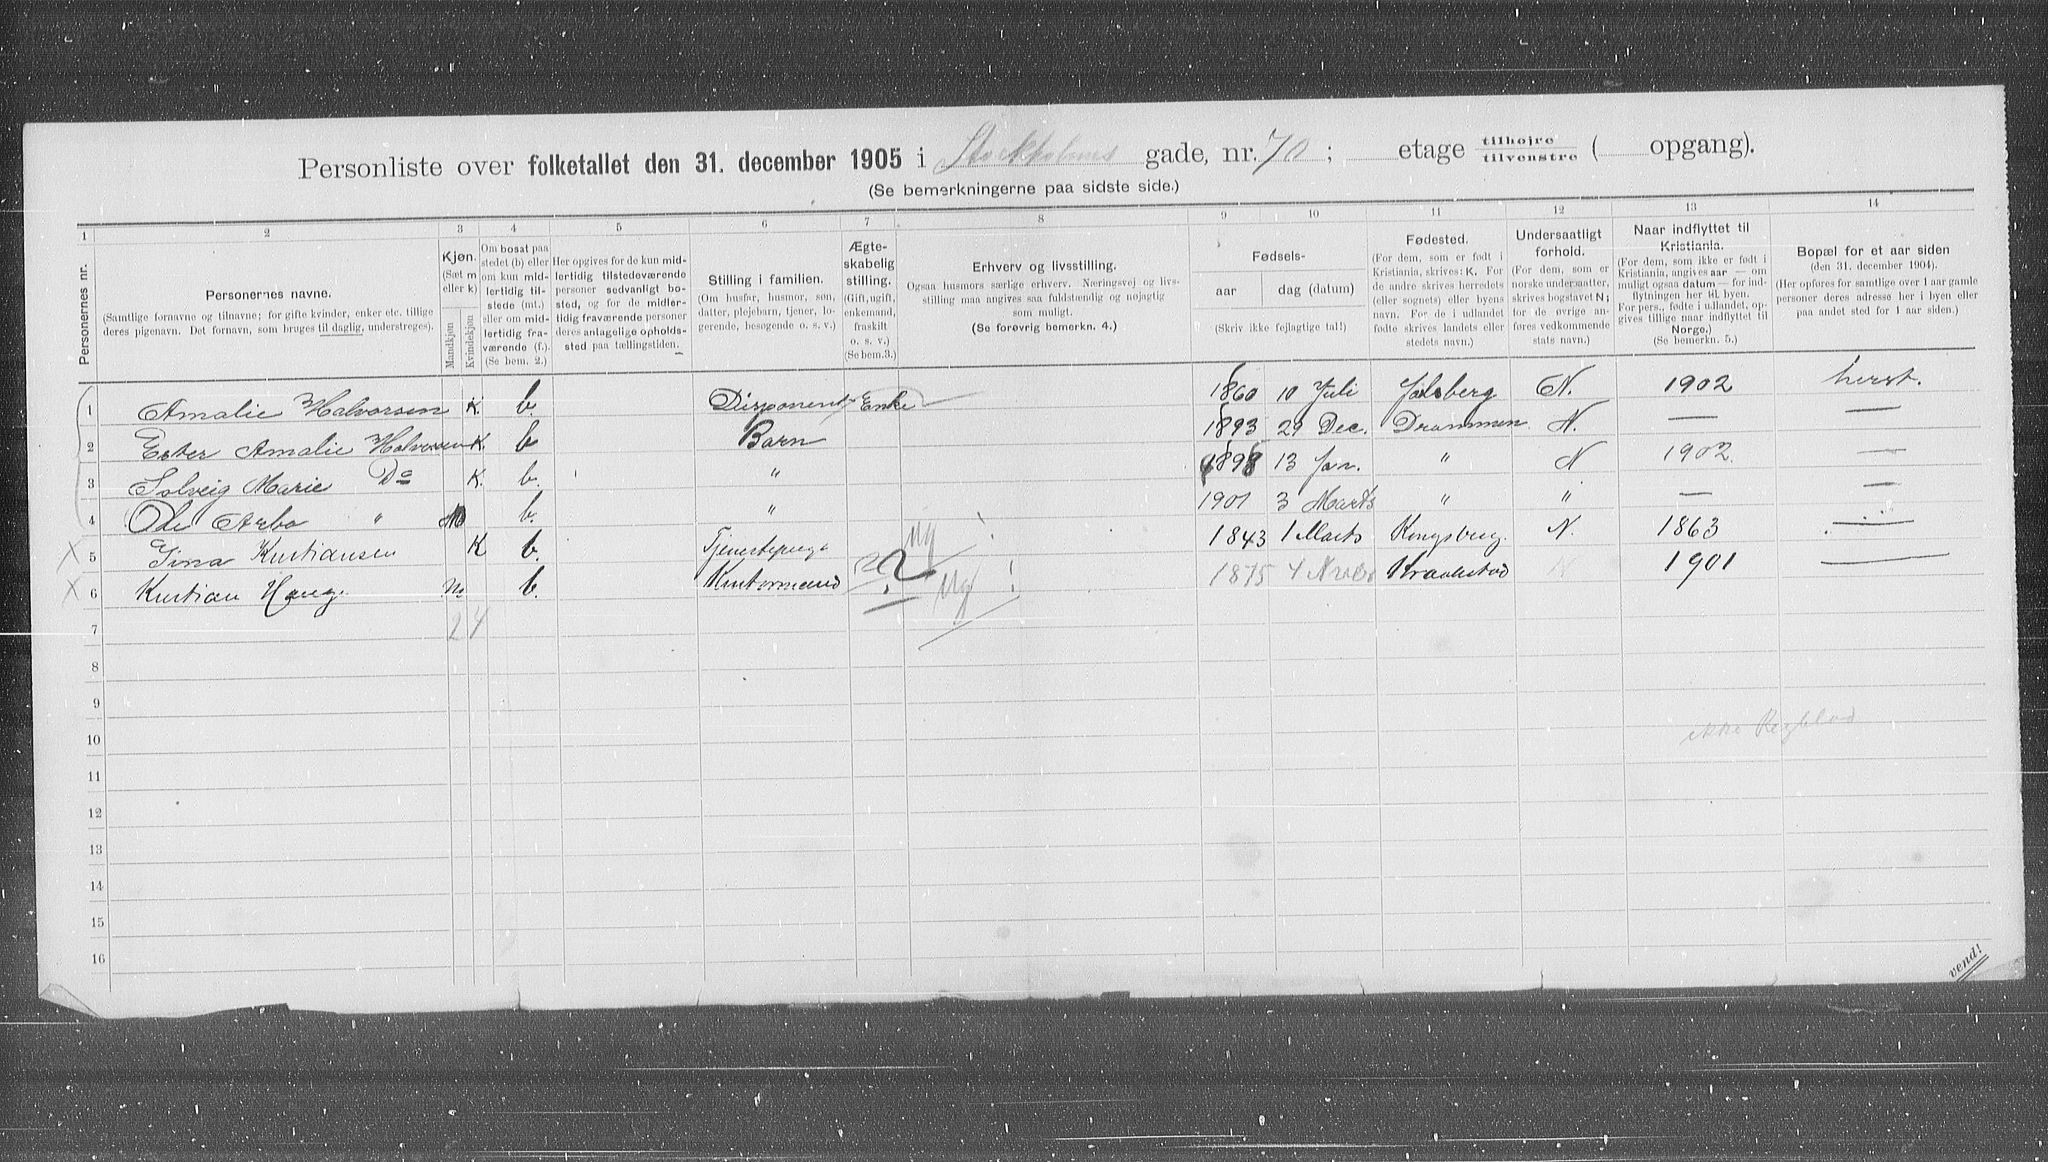 Personliste over folketallet den 31. december 1905 i Stockholms gade, nr. 70; etage tilhøjre tilvenstre ( opgang).
(Se bemerkningerne paa sidste side.)
1 2 3 4 5 6 7 8 9 10 11 12 13 14
Personernes nr.
Personernes navne.
(Samtlige fornavne og tilnavne; for gifte kvinder, enker etc. tillige
deres pigenavn. Det fornavn, som bruges til daglig, understreges).
Kjøn.
(Sæt m
eller k)
Mandkjøn
Kvindekjøn
Om bosat paa
stedet (b) eller
om kun mid-
lertidig til-
stede (mt.)
eller om mid-
lertidig fra-
værende (f.).
(Se bem. 2.)
Her opgives for de kun mid-
lertidig tilstedeværende
personer sedvanligt bo-
sted, og for de midler-
tidig fraværende personer
deres antagelige opholds-
sted paa tællingstiden.
Stilling i familien.
(Om husfar, husmor, søn,
datter, plejebarn, tjener, lo-
gerende, besøgende o. s. v.)
Ægte-
skabelig
stilling.
(Gift, ugift,
enkemand,
fraskilt
o. s. v.)
(Se bem.3.)
Erhverv og livsstilling.
Ogsaa husmors særlige erhverv. Næringsvej og livs-
stilling maa angives saa fuldstændig og nøjagtig
som muligt.
(Se forøvrig bemerkn. 4.)
Fødsels-
aar dag (datum)
(Skriv ikke fejlagtige tal!)
Fødested.
(For dem, som er født i
Kristiania, skrives: K. For
de andre skrives herredets
(eller sognets) eller byens
navn. For de i udlandet
fødte skrives landets eller
stedets navn.)
Undersaatligt
forhold.
(For dem, som er
norske undersaatter,
skrives bogstavet N;
for de øvrige an-
føres vedkommende
stats navn.)
Naar indflyttet til
Kristiania.
(For dem, som ikke er født i
Kristiania, angives aar — om
muligt ogsaa datum — for ind-
flytningen her til byen.
For pers., fødte i udlandet, op-
gives tillige naar indflyttet til
Norge.)
(Se bemerkn. 5.)
Bopæl for et aar siden
(den 31. december 1904).
(Her opføres for samtlige over 1 aar gamle
personer deres adresse her i byen eller
paa andet sted for 1 aar siden.)
1 Amalie Halvorsen K. b. Disponent Enke 1860 10 Juli N. 1902 herst.
2 Ester Amalie Halvorsen K. b Barn 1893 29 Dec. Drammen N. — —
3 Solveig Marie Do K. b. " 1898 13 Jan. " N 1902 —
4 Ole Arbo " M b. " 1901 3 Marts " " — —
X 5 Gina Kristiansen K b. Tjenestepige ug ! 1843 1 Marts Kongsberg N. 1863 —
X 6 Kristian Haug m b. Kontormand ? ug ! 1875 4 Kraakstad 1901 —
7 2 4
8
9
ikke
10
11
12
13
14
15
16
vend!